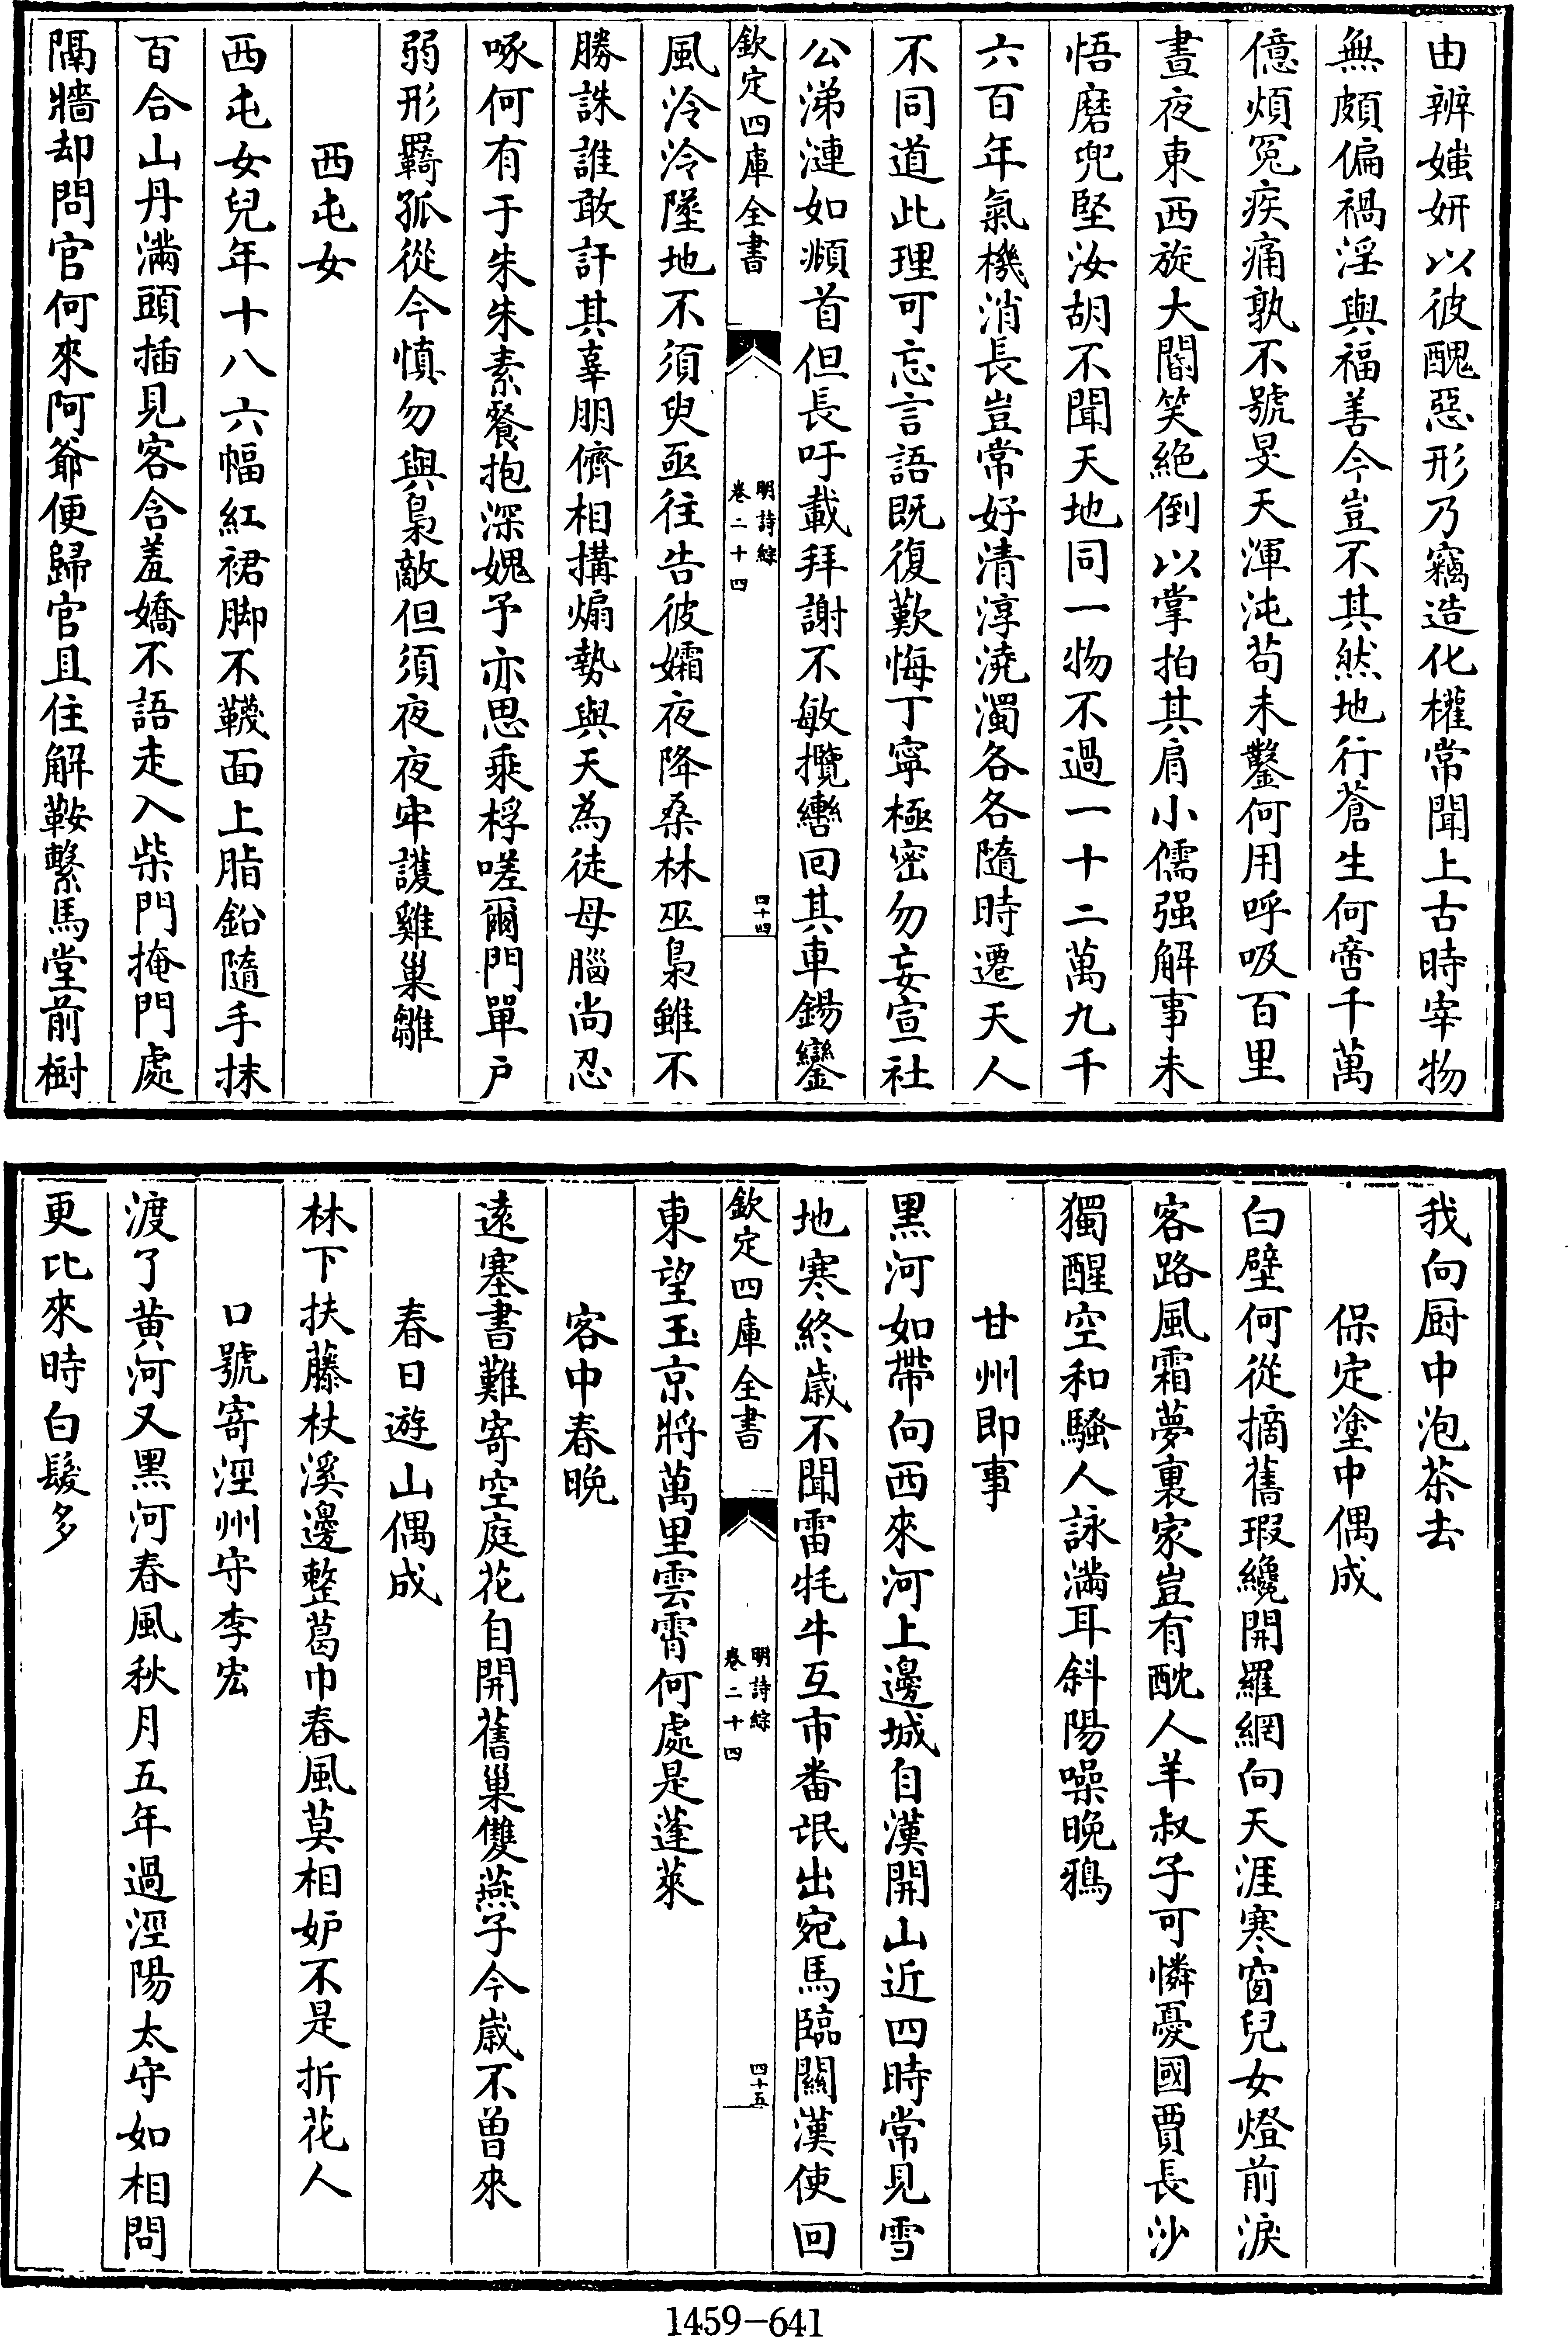 由辨媸妍以彼醜惡形乃竊造化權常聞上古時宰物
無頗偏禍淫與福善今豈不其然地行蒼生何啻千萬
億煩冤疾痛孰不號旻天渾沌苟未鑿何用呼吸百里
晝夜東西旋大闇笑絶倒以掌拍其肩小儒强解事未
悟磨兜堅汝胡不聞天地同一物不過一十二萬九千
六百年氣機消長豈常好清淳澆濁各各隨時遷天人
不同道此理可忘言語既復歎悔丁寧極密勿妄宣社
公涕漣如瀕首但長吁載拜謝不敏攬轡回其車鍚鑾
欽定四庫全書
明詩綜
卷二十四
四十四
風泠泠墜地不須臾亟往告彼孀夜降桑林巫梟雖不
勝誅誰敢訐其辜朋儕相搆煽勢與天為徒母腦尚忍
啄何有于朱朱素餐抱深媿予亦思乘桴嗟爾門單戶
弱形羈孤從今慎勿與梟敵但須夜夜牢護雞巢雛
西屯女
西屯女兒年十八六幅紅裙脚不韈面上脂鉛隨手抹
百合山丹滿頭插見客含羞嬌不語走入柴門掩門處
隔牆却問官何來阿爺便歸官且住解鞍繫馬堂前樹
我向厨中泡茶去
保定塗中偶成
白璧何從摘舊瑕纔開羅網向天涯寒窗兒女燈前淚
客路風霜夢裏家豈有酖人羊叔子可憐憂國賈長沙
獨醒空和騷人詠滿耳斜陽噪晚鴉
甘州即事
黑河如帶向西來河上邊城自漢開山近四時常見雪
地寒終歲不聞雷牦牛互市番氓出宛馬臨關漢使回
欽定四庫全書
明詩綜
卷二十四
四十五
東望玉京將萬里雲霄何處是蓬萊
客中春晚
遠塞書難寄空庭花自開舊巢雙燕子今歲不曾來
春日遊山偶成
林下扶藤杖溪邊整葛巾春風莫相妒不是折花人
口號寄涇州守李宏
渡了黄河又黑河春風秋月五年過涇陽太守如相問
更比來時白髮多
1459-641